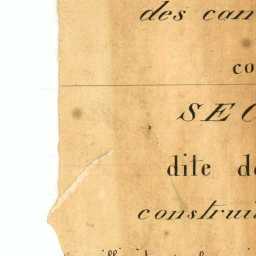 des can
co
SEC
dite d
construi